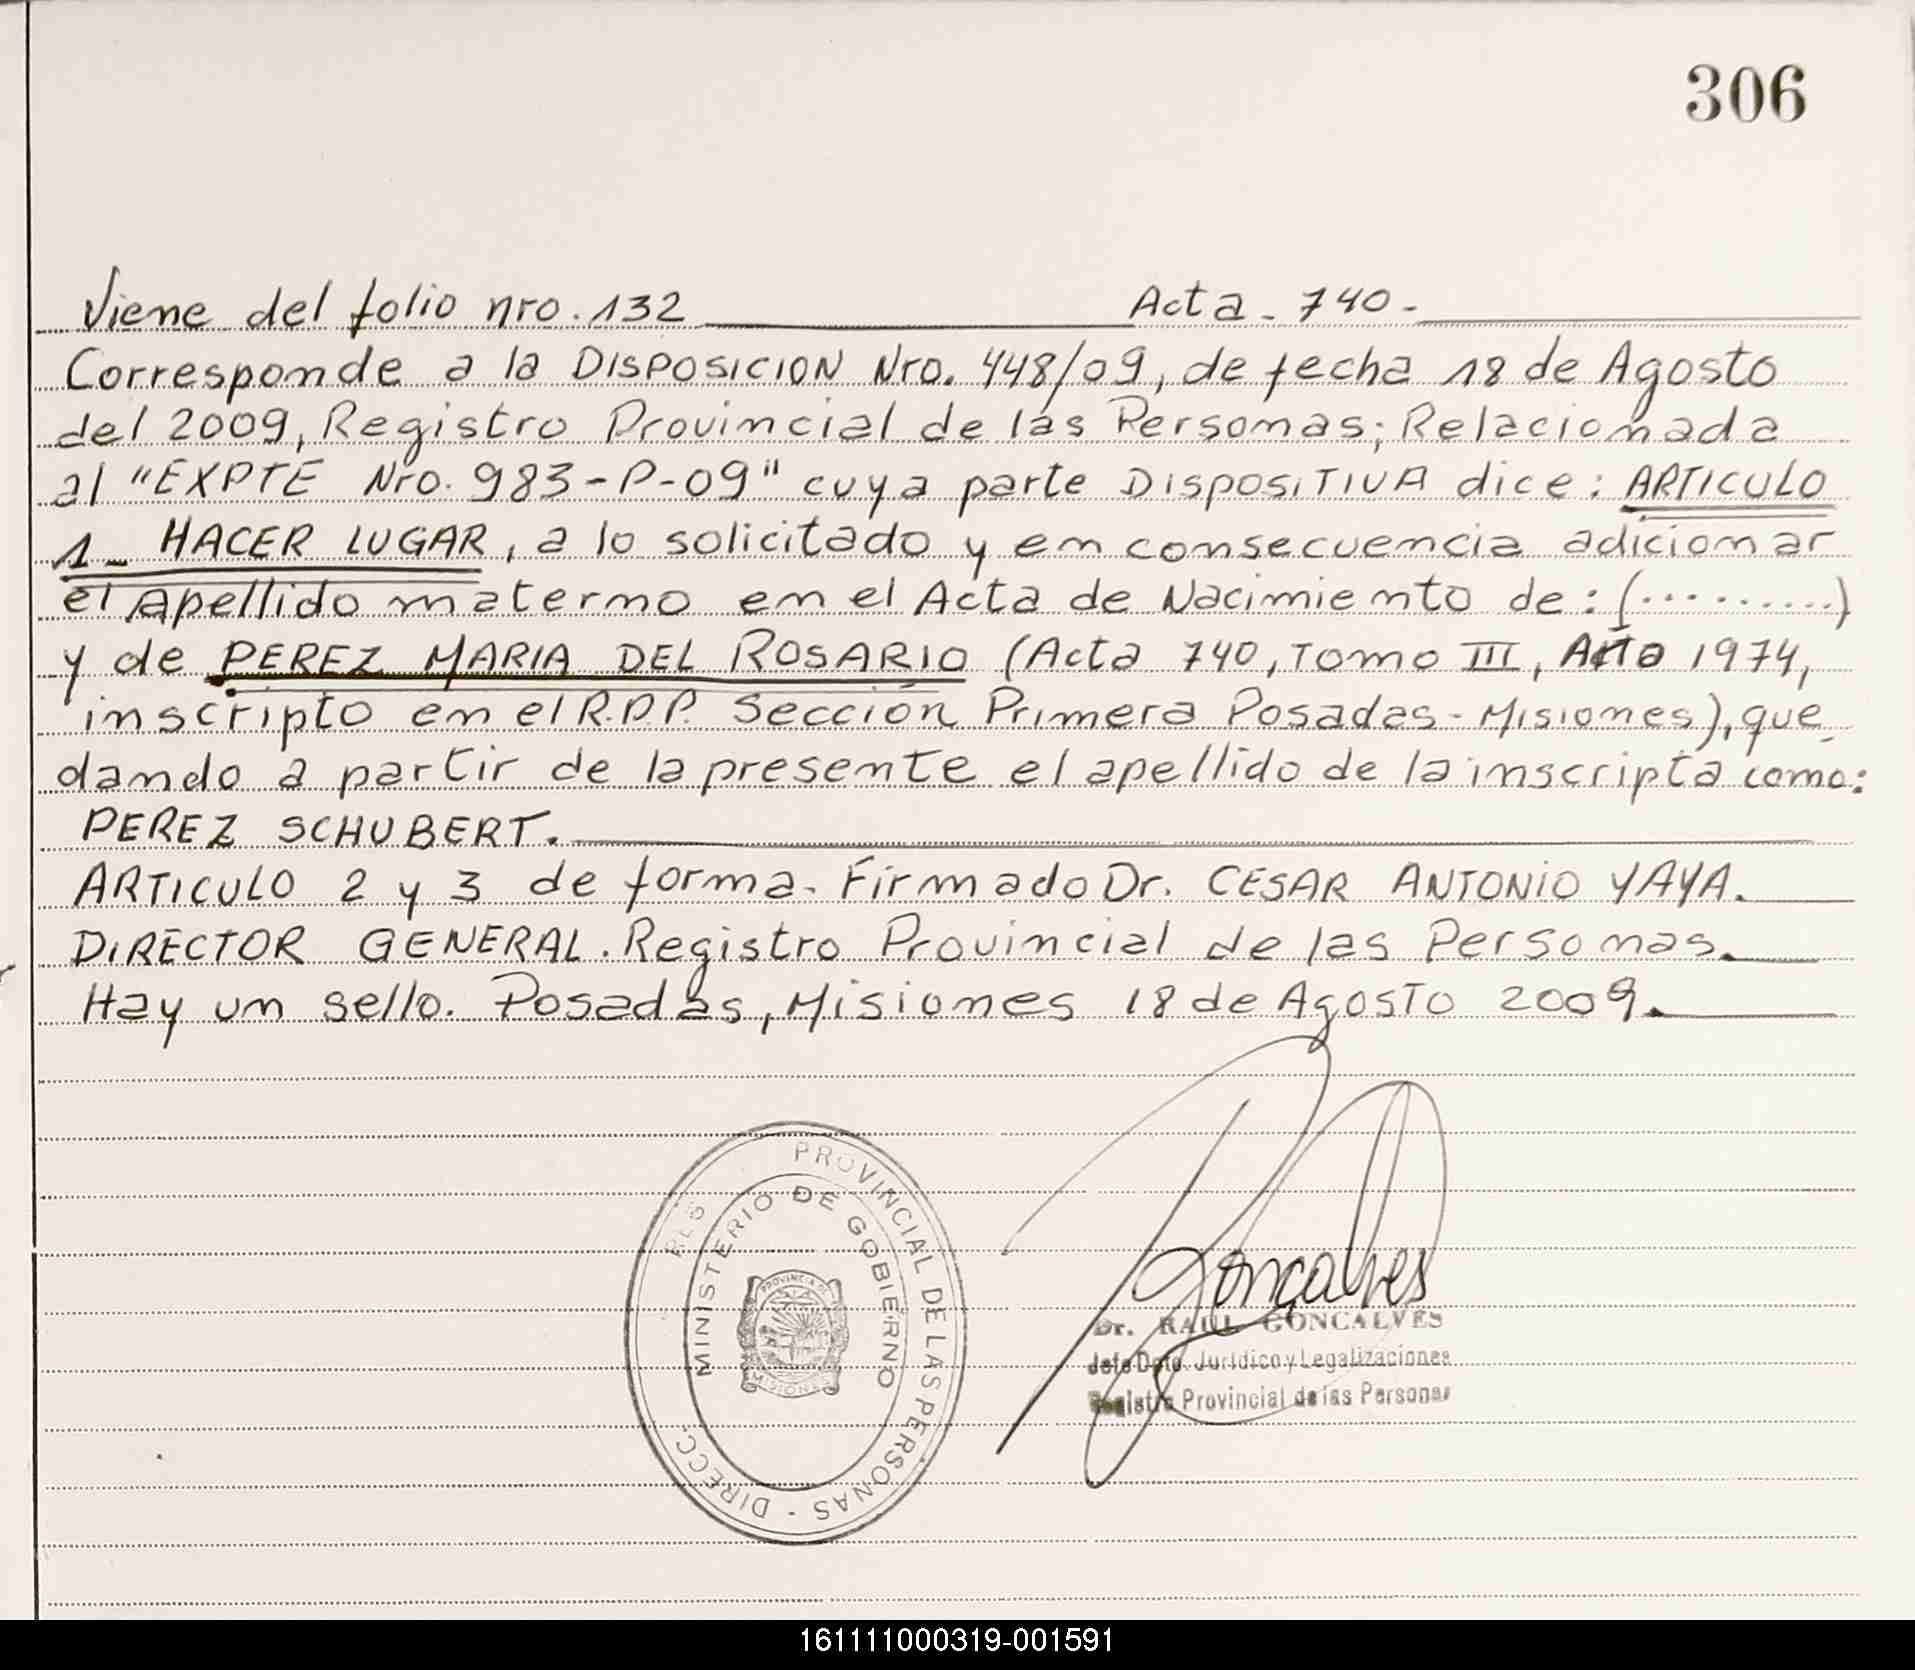 306
Viene del folio nro. 132 Acta - 740 -
Corresponde a la DISPOSICION Nro. 448/09, de fecha 18 de Agosto
del 2009, Registro Provincial de las Personas; Relacionada
al "EXPTE Nro. 983-P-09" cuya parte DISPOSITIVA dice: ARTICULO
1_ HACER LUGAR, a lo solicitado y en consecuencia adicionar
el Apellido materno en el Acta de Nacimiento de: (..........)
y de PEREZ MARIA DEL ROSARIO (Acta 740, Tomo III, Año 1974,
inscripto en el R.P.P. Sección Primera Posadas - Misiones), que_
dando a partir de la presente el apellido de la inscripta como:
PEREZ SCHUBERT.
ARTICULO 2 y 3 de forma. Firmado Dr. CESAR ANTONIO YAYA.
DIRECTOR GENERAL. Registro Provincial de las Personas.
Hay un sello. Posadas, Misiones 18 de Agosto 2009.
DIRECC. REG PROVINCIAL DE LAS PERSONAS -
MINISTERIO DE GOBIERNO
PROVINCIA
MISIONES
Gonçalves
Dr. RAUL GONCALVES
Jefe Dpto. Jurídico y Legalizaciones
Registro Provincial de las Personas
161111000319-001591